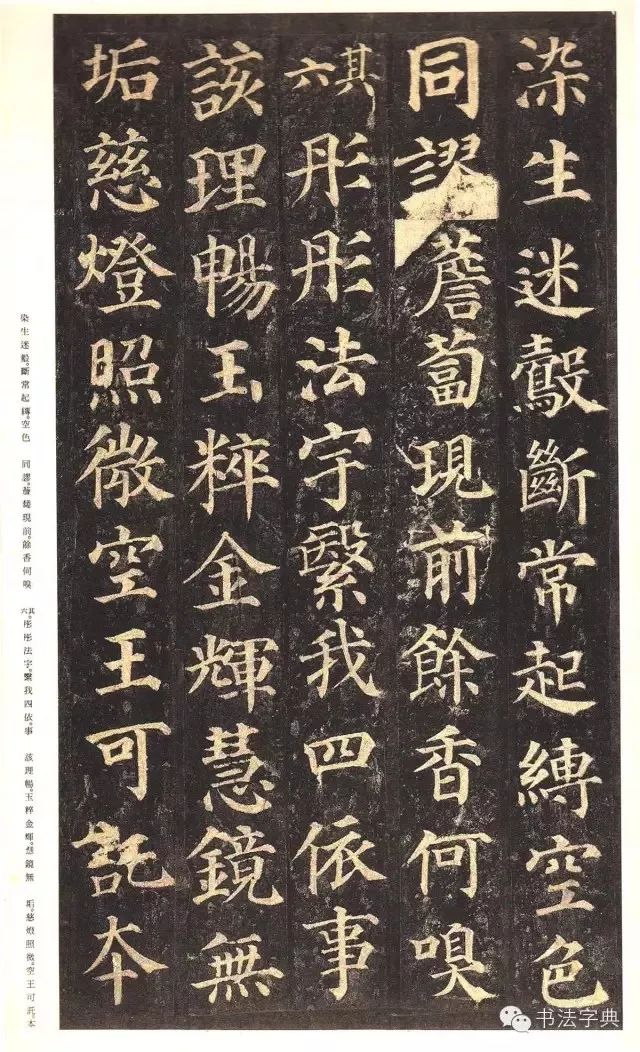 染生迷鷇斷常起縛空色
同謬薝蔔現前餘香何嗅
其六彤彤法宇繄我四依事
該理暢玉粹金輝慧鏡無
垢慈燈照微空王可託本
染生迷鷇。斷常起縛。空色
同謬。薝蔔現前。餘香何嗅
其六。彤彤法宇。繄我四依。事
該理暢。玉粹金輝。慧鏡無
垢。慈燈照微。空王可託。本
书法字典